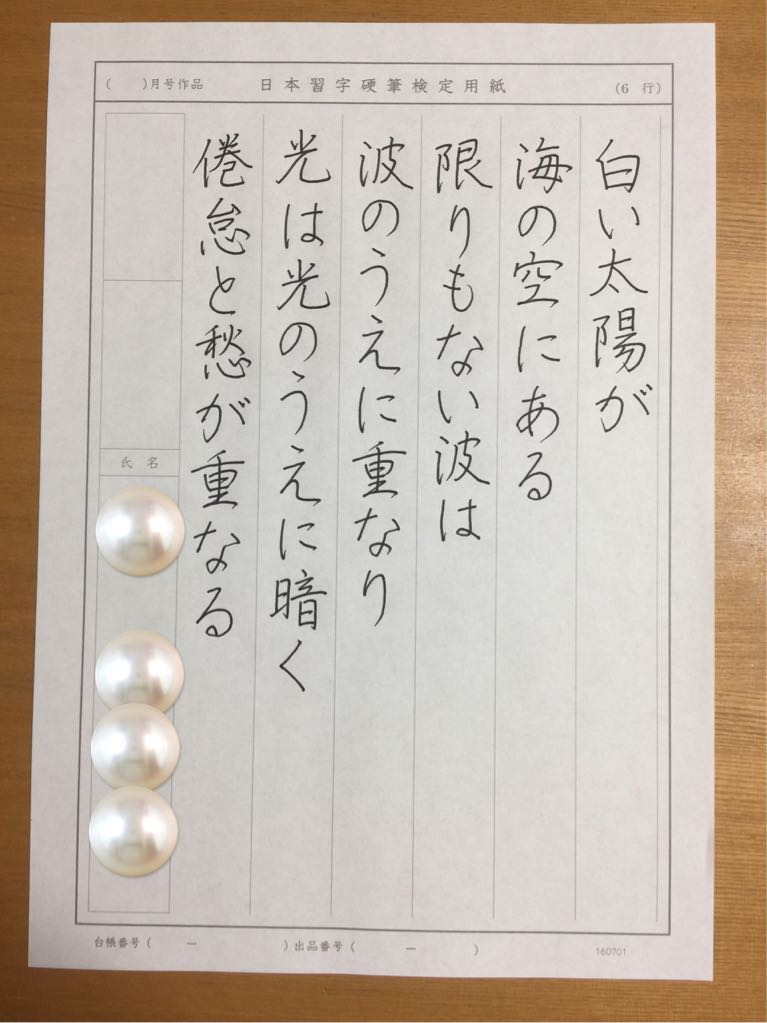 ( )月号作品 日本習字硬筆検定用紙 (6 行)
白い太陽が
海の空にある
限りもない波は
波のうえに重なり
光は光のうえに暗く
倦怠と愁が重なる
氏名
台帳番号( ー )出品番号( ー )
160701